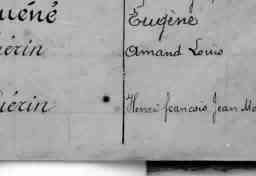 uéné Eugène
érin Amand Louis
uérin Henri francois Jean Ma